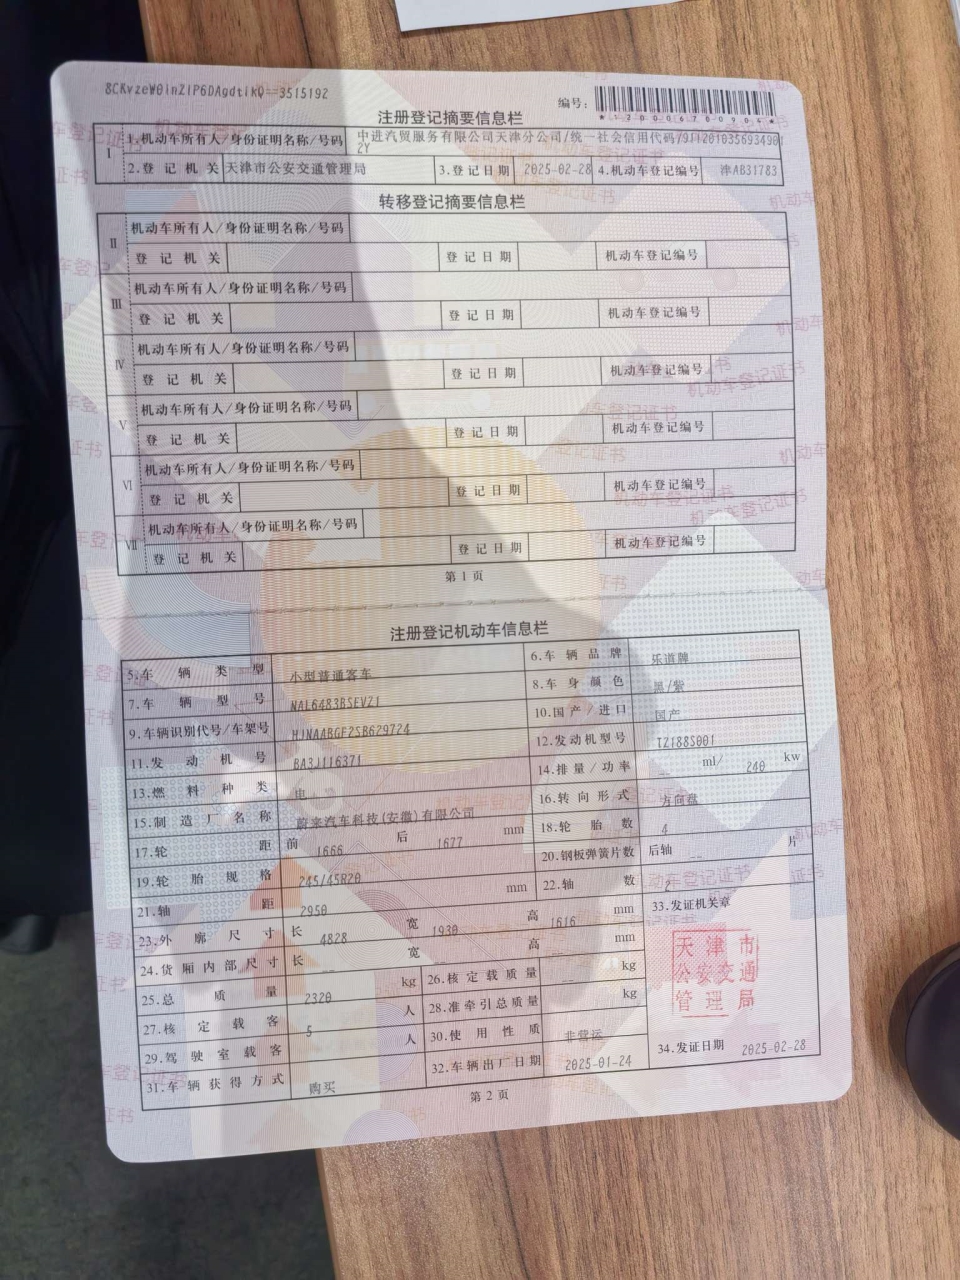 8CKvzeW0inZIP6DAgdtikQ==3515192
编号:
*120006700904*
注册登记摘要信息栏
I 1.机动车所有人/身份证明名称/号码 中进汽贸服务有限公司天津分公司/统一社会信用代码/911201035693490
2Y
2.登记机关 天津市公安交通管理局 3.登记日期 2025-02-28 4.机动车登记编号 津AB31783
转移登记摘要信息栏
II 机动车所有人/身份证明名称/号码
登记机关 登记日期 机动车登记编号
III 机动车所有人/身份证明名称/号码
登记机关 登记日期 机动车登记编号
IV 机动车所有人/身份证明名称/号码
登记机关 登记日期 机动车登记编号
V 机动车所有人/身份证明名称/号码
登记机关 登记日期 机动车登记编号
VI 机动车所有人/身份证明名称/号码
登记机关 登记日期 机动车登记编号
VII 机动车所有人/身份证明名称/号码
登记机关 登记日期 机动车登记编号
第 1 页
注册登记机动车信息栏
5.车辆类型 小型普通客车 6.车辆品牌 乐道牌
7.车辆型号 NAL6483BSEVZ1 8.车身颜色 黑/紫
9.车辆识别代号/车架号 HJNAABGF2SB629724 10.国产/进口 国产
11.发动机号 BA3J116371 12.发动机型号 TZ188S001
13.燃料种类 电 14.排量/功率 -- ml/ 240 kw
15.制造厂名称 蔚来汽车科技(安徽)有限公司 16.转向形式 方向盘
17.轮距 前 1666 后 1677 mm 18.轮胎数 4
19.轮胎规格 245/45R20 20.钢板弹簧片数 后轴 -- 片
21.轴距 2950 mm 22.轴数 2
23.外廓尺寸 长 4828 宽 1930 高 1616 mm 33.发证机关章
24.货厢内部尺寸 长 -- 宽 -- 高 -- mm
25.总质量 2320 kg 26.核定载质量 -- kg
27.核定载客 5 人 28.准牵引总质量 kg
29.驾驶室载客 人 30.使用性质 非营运
31.车辆获得方式 购买 32.车辆出厂日期 2025-01-24 34.发证日期 2025-02-28
天津市
公安交通
管理局
第 2 页